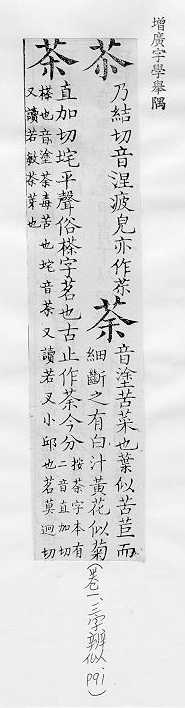 增廣字學舉隅
苶 乃結切音涅疲皃亦作 荼 音塗苦菜也葉似苦苣而
細斷之有白汁黃花似菊
茶 直加切垞平聲俗搽字茗也古止作荼今分 按荼字本有
二音直加切
搽也音塗荼毒苦也垞音茶又讀若叉小邱也茗莫迥切
又讀若敏茶芽也
(卷一、三字辨似, p91)